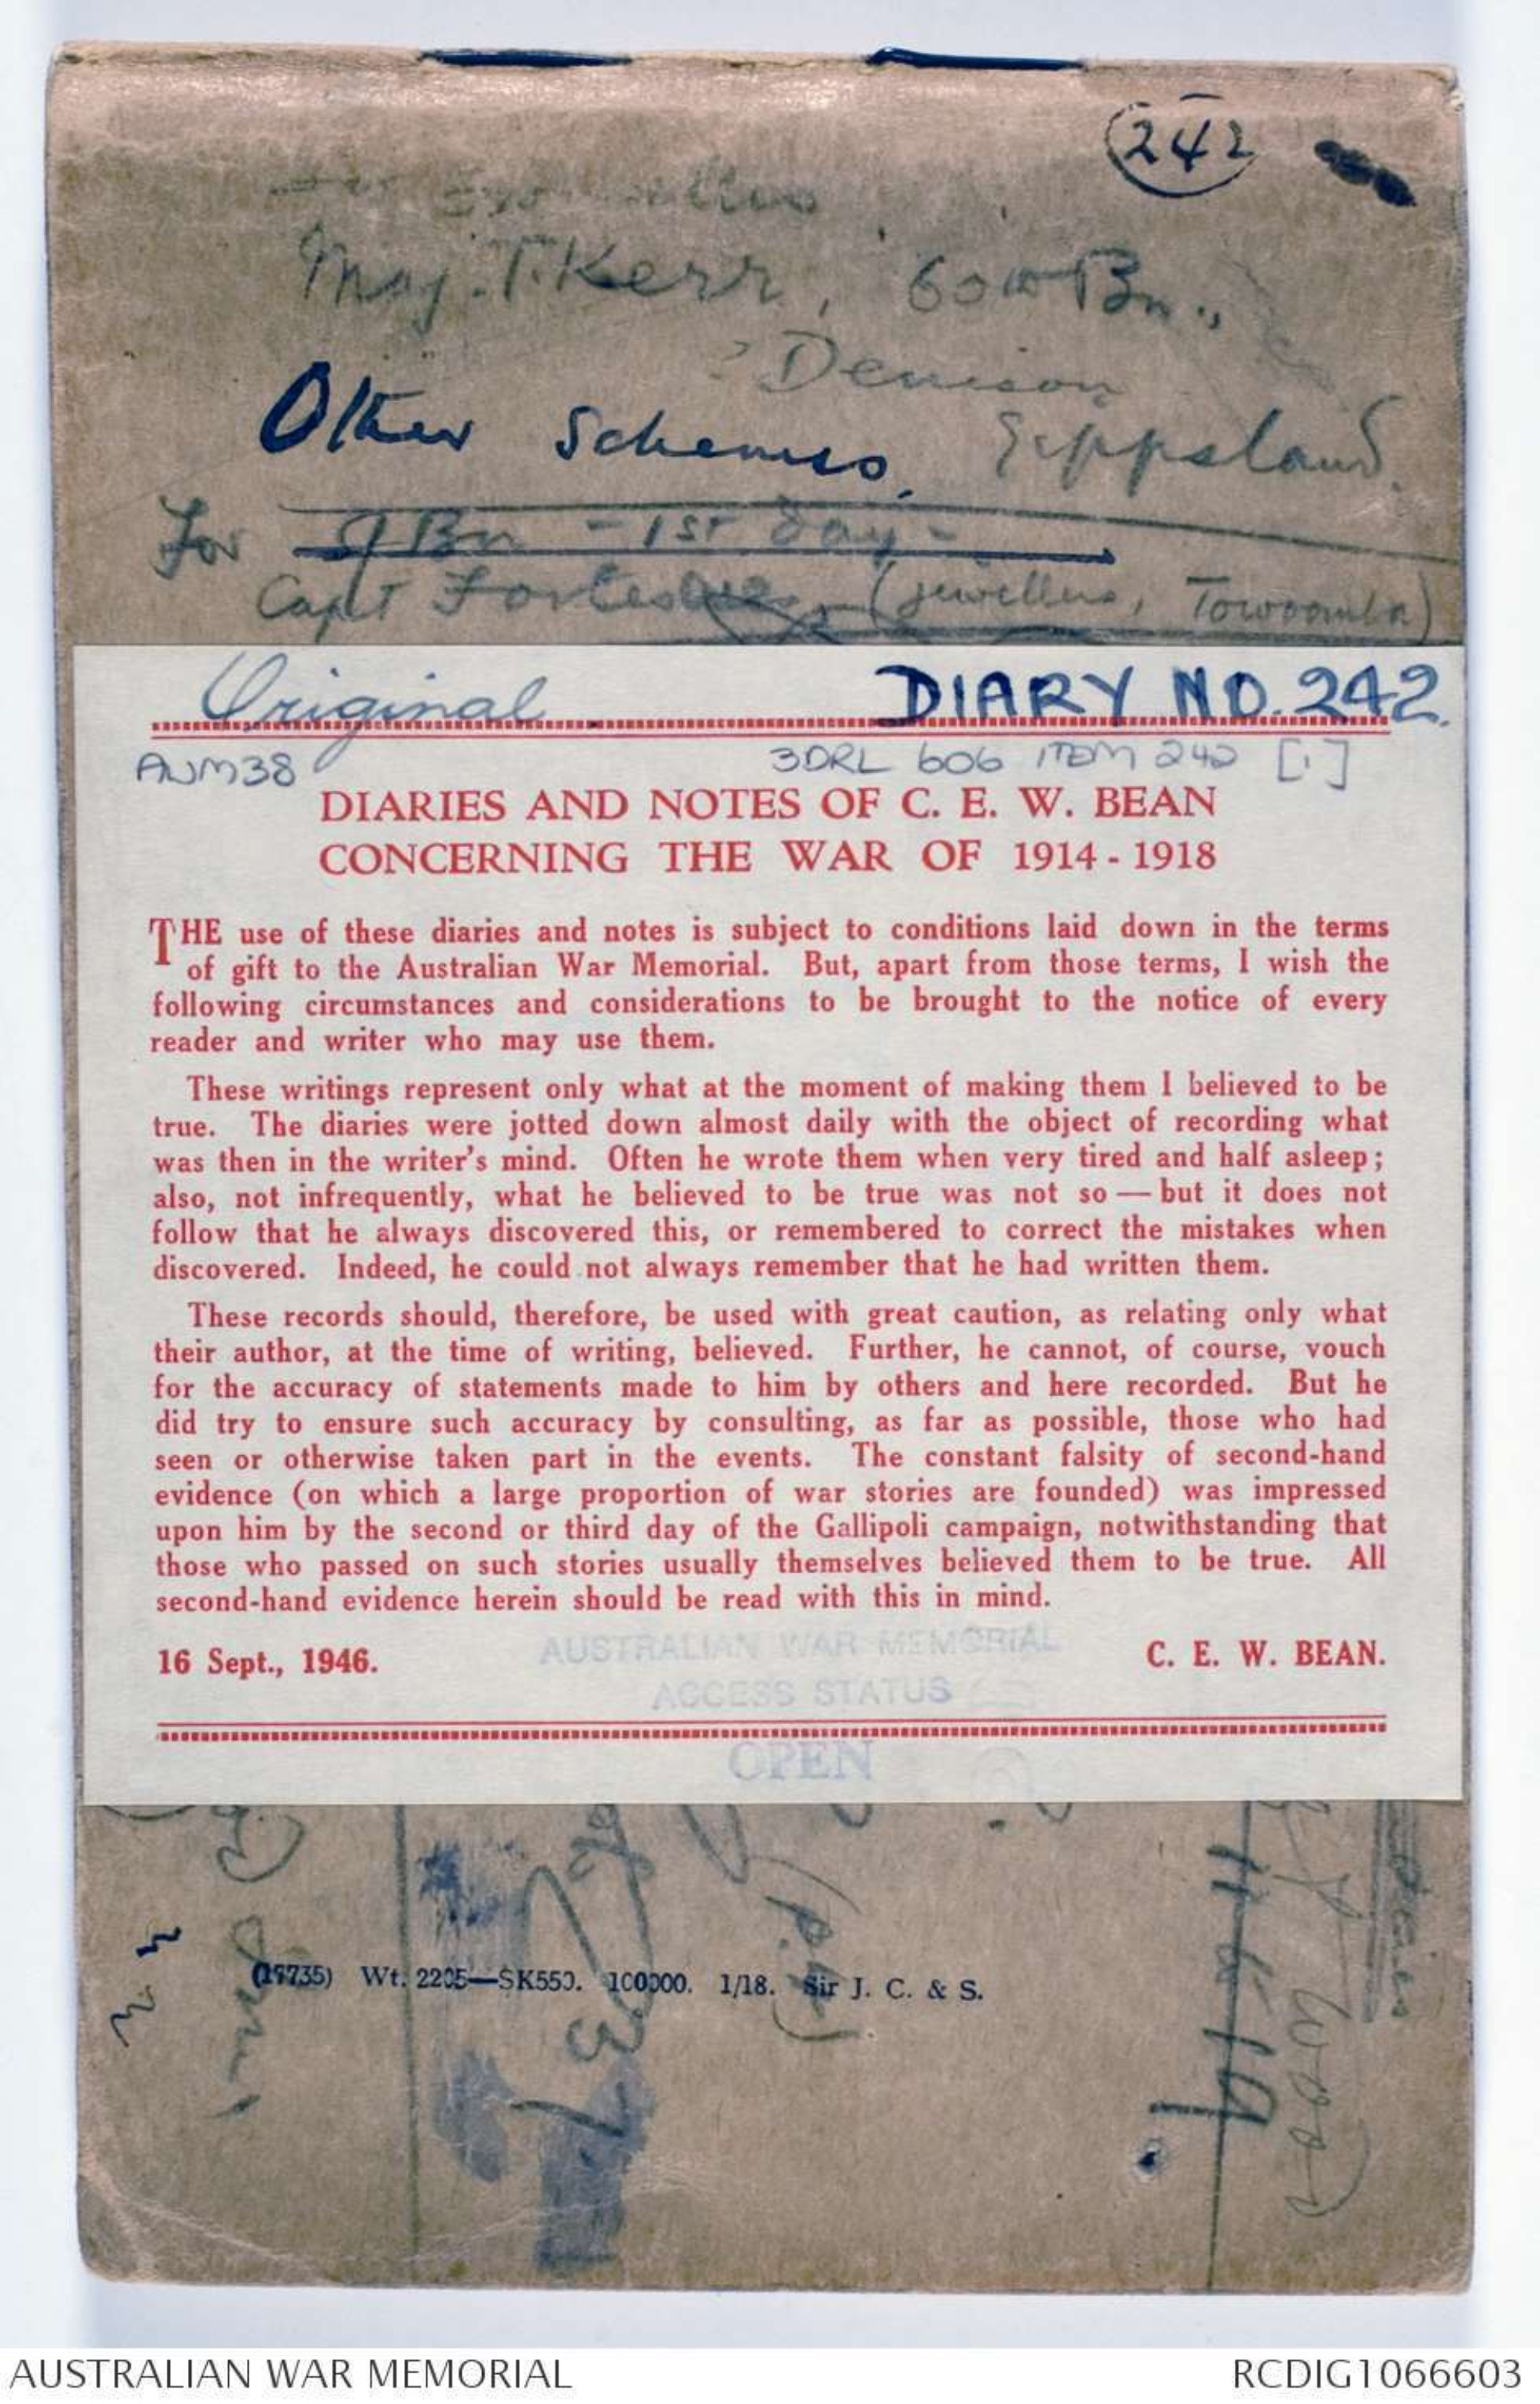 242
Maj. T. Kerr, 60th Bn.,
? Denison
Other Schemes, Gippsland.
For 9 Bn - 1st day -
Capt Fortescue (jewellers, Towoomba)
Original DIARY NO. 242.
AWM38 3DRL 606 ITEM 242 [1]
DIARIES AND NOTES OF C. E. W. BEAN
CONCERNING THE WAR OF 1914-1918
THE use of these diaries and notes is subject to conditions laid down in the terms
of gift to the Australian War Memorial. But, apart from those terms, I wish the
following circumstances and considerations to be brought to the notice of every
reader and writer who may use them.
These writings represent only what at the moment of making them I believed to be
true. The diaries were jotted down almost daily with the object of recording what
was then in the writer's mind. Often he wrote them when very tired and half asleep;
also, not infrequently, what he believed to be true was not so — but it does not
follow that he always discovered this, or remembered to correct the mistakes when
discovered. Indeed, he could not always remember that he had written them.
These records should, therefore, be used with great caution, as relating only what
their author, at the time of writing, believed. Further, he cannot, of course, vouch
for the accuracy of statements made to him by others and here recorded. But he
did try to ensure such accuracy by consulting, as far as possible, those who had
seen or otherwise taken part in the events. The constant falsity of second-hand
evidence (on which a large proportion of war stories are founded) was impressed
upon him by the second or third day of the Gallipoli campaign, notwithstanding that
those who passed on such stories usually themselves believed them to be true. All
second-hand evidence herein should be read with this in mind.
16 Sept., 1946. C. E. W. BEAN.
AUSTRALIAN WAR MEMORIAL
ACCESS STATUS
OPEN
(17735) Wt. 2205—SK550. 100000. 1/18. Sir J. C. & S.
AUSTRALIAN WAR MEMORIAL RCDIG1066603